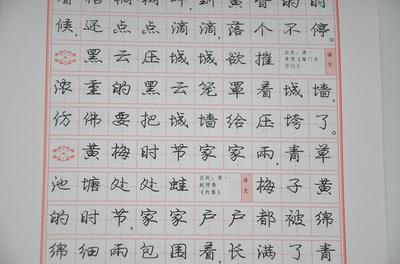 到黄昏的时
候,还点点滴滴,落个不停。
黑云压城城欲摧
出处:唐·
李贺《雁门太
守行》
译文
浓重的黑云笼罩着城墙,
仿佛要把城墙给压垮了。
黄梅时节家家雨,青草
池塘处处蛙
出处:宋·
赵师秀
《约客》
译文
梅子黄
的时节,家家户户都被绵
绵细雨包围着,长满了青